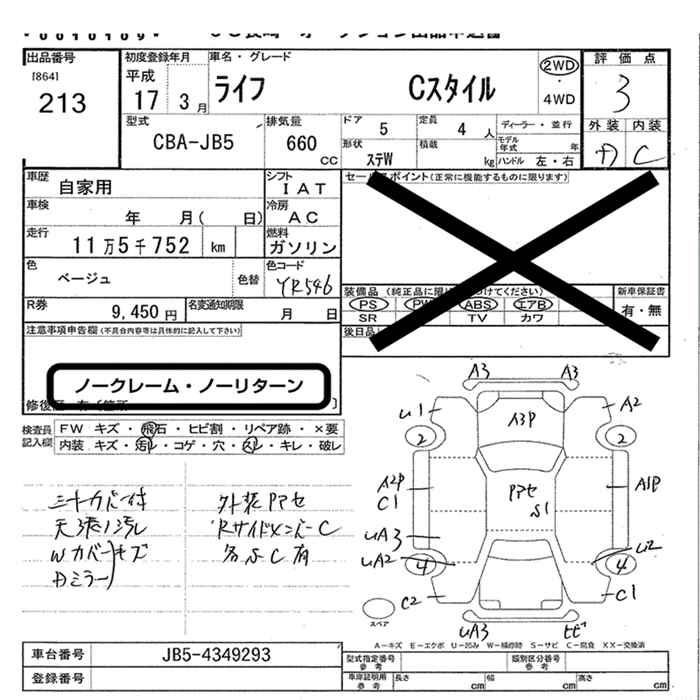 *0010109*
出品番号
[864]
213
初度登録年月
平成
17 3月
車名・グレード
ライフ Cスタイル
2WD
・
4WD
評価点
3
外装 内装
C
型式
CBA-JB5
排気量
660
cc
ドア
5
定員
4 人
ディーラー・並行
モデル年式 年
形状
ステW
積載
kg
ハンドル 左・右
車歴
自家用
シフト
IAT
セールスポイント(正常に機能するものに限ります)
車検
年 月( 日)
冷房
AC
走行
11万5千752 km
燃料
ガソリン
色
ベージュ
色替
色コード
YR546
装備品
PS PW ABS エアB
SR TV カワ
新車保証書
有・無
R券
9,450円
名変通知期限
月 日
後日品
注意事項申告欄(不具合内容等は具体的に記入して下さい)
ノークレーム・ノーリターン
修復歴 有
検査員記入欄
FW キズ・飛石・ヒビ割・リペア跡・×要
内装 キズ・汚レ・コゲ・穴・スレ・キレ・破レ
天張ノ汚レ
Wカバーキズ
Dミラー
外装Pアセ
RサイドメンバーC
各所SC有
A3 A3
U1 A3P A2
2 2
A2P
C1
PアセS1
A1P
UA3
UA2 U2
4 4
C2 C1
スペア
UA3 ヒビ
A-キズ E-エクボ U-凹み W-補修跡 S-サビ C-腐食 XX-交換済
車台番号 JB5-4349293
登録番号
型式指定番号
参考
類別区分番号
参考
車庫証明用
参考
長さ cm
幅 cm
高さ cm